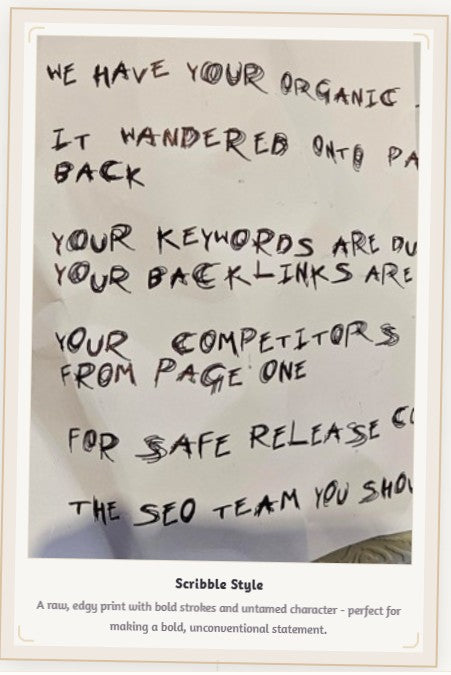 WE HAVE YOUR ORGANIC
IT WANDERED ONTO PA
BACK
YOUR KEYWORDS ARE DU
YOUR BACKLINKS ARE
YOUR COMPETITORS
FROM PAGE ONE
FOR SAFE RELEASE CO
THE SEO TEAM YOU SHOU
Scribble Style
A raw, edgy print with bold strokes and untamed character - perfect for
making a bold, unconventional statement.